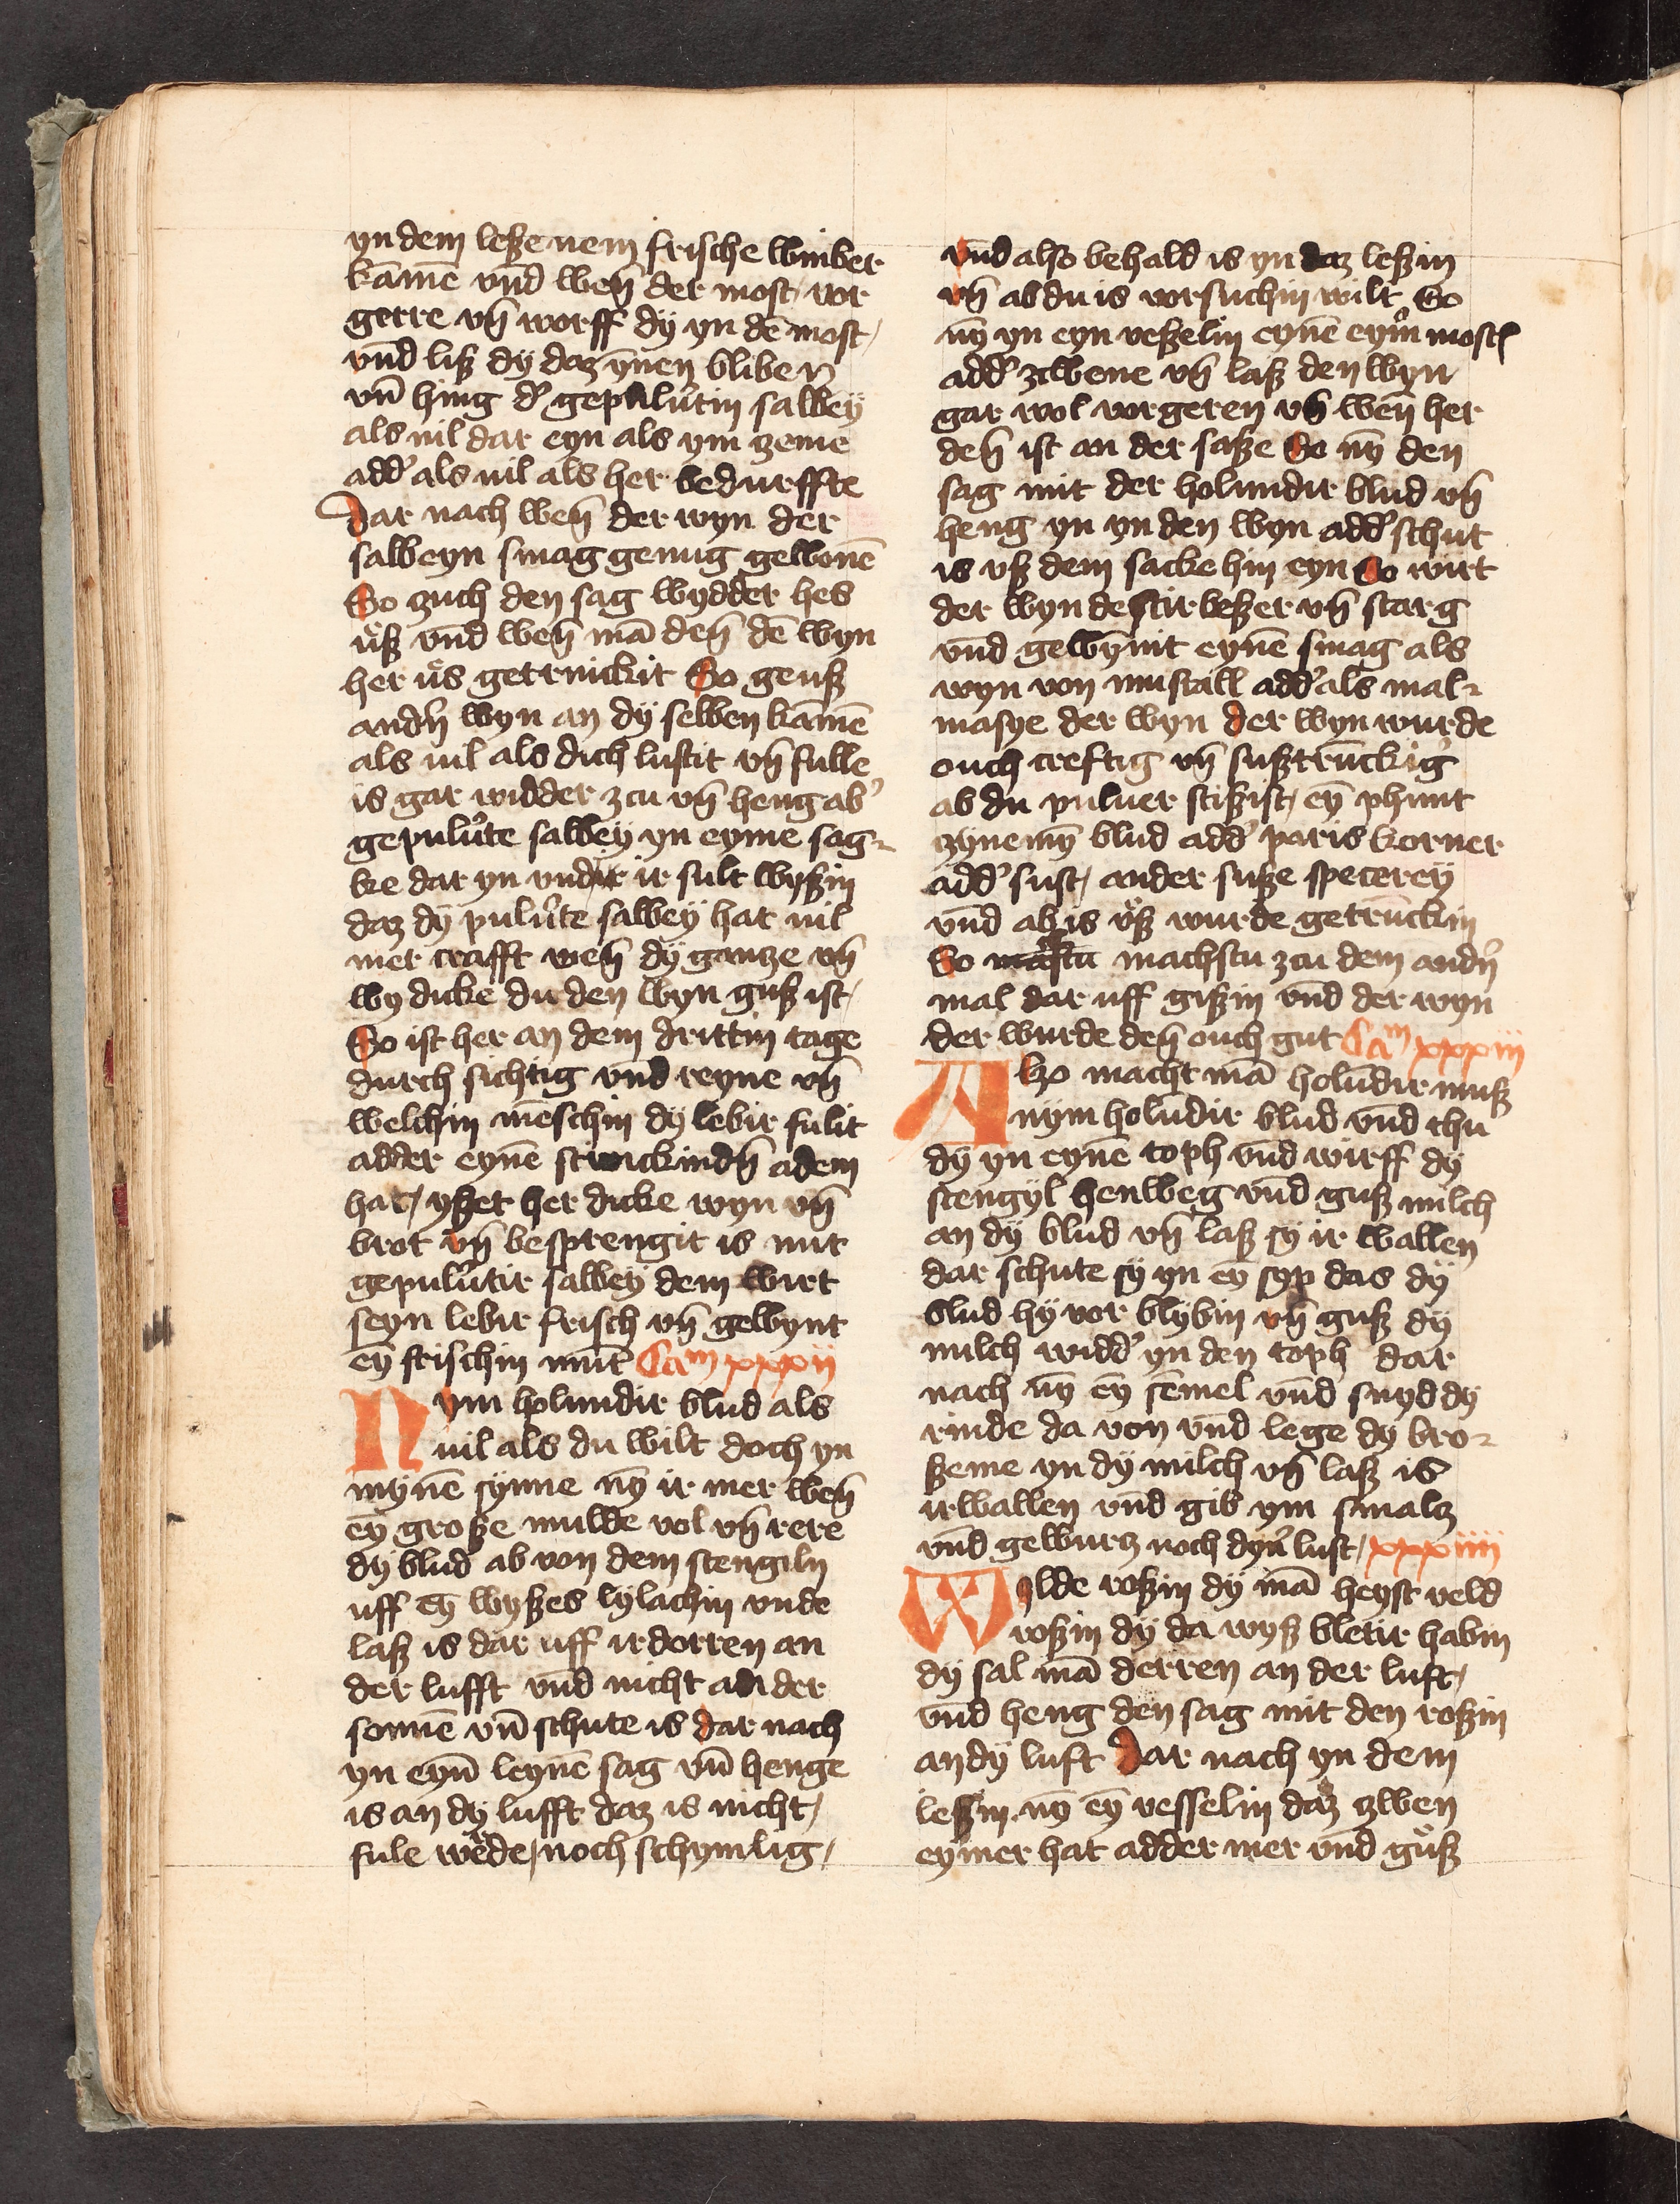 yn dem leße nem frische winber
kāmē vnd weñ der most vor
gerre vñ worff dÿ yn dē most
vnd liß dÿ daz ynnen bliben
vñ hing d' gepuluˀtin salbeÿ
als uil dar eyn als ym zeme
add' als uil als her bedurffte
Dar nach weñ der wyn der
salbeyn smag genug gewonē
So zuch den sag wydder hes
uͦß vnd weñ mā deñ dē wyn
her uͦs getrinckit So geuß
and'n wyn an dÿ selben kāmē
als uil als dich lustit vñ fulle
is gar widder zcu vñ heng ab'
gepuluˀte salbeÿ yn eyme sag-
ke dar yn vndir ir sult wyßin
daz dÿ puluˀte salbeÿ hat uil
mer crafft weñ dÿ gantze vñ
wy dicke du den wyn gußist
So ist her an dem drittin tage
durch sichtig vnd reyne vñ
welchin mēschin dÿ lebir fulit
adder eynē stinckindñ adem
hat / yßet her dicke wyn vñ
brot vñ besprengit is mit
gepuluˀtir salbeÿ dem wirt
seyn lebir frisch vñ gewynt
eȳ frischin mūt Cam xxxii
Nym holundir blud als
uil als du wilt doch yn
mynē synne nȳ ir mer weñ
eȳ große mulde vol vñ rere
dÿ blud ab von dem stengiln
uff eȳ wyßes lÿlachin vnde
laß is dar uff irdorren an
der lufft vnd nicht an der
sonnē vñ schute is dar nach
yn eyñ leynē sag vñ henge
is an dÿ lufft daz is nicht /
fule wēde / noch schymlig /
vnd also behald is yn daz leßin
vñ ab du is vorsuchin wilt So
nȳ yn eyn veßelin eynē eym' most
add' zwene vñ laß den wyn
gar wol vorgeren vñ weñ her
deñ ist an der saße So nȳ den
sag mit der holundir blud vñ
heng yn yn den wyn add' schut
is uß dem sacke hin eyn So wirt
der wyn destir beßer vñ starg
vnd gewynnit eynē smag als
wyn von mustatl add' als mal-
masye der wyn der wyn wurde
ouch creftig vñ sußtrūckig
ab du puluer stißist / eȳ phunt
zynemȳ blud add' paris korner
add' sust / ander suße specereÿ
vnd ab is uͦß wurde getrūckin
So machstu zcu dem and'n
mal dar uff gißin vnd der wyn
der wurde deñ ouch gut Cam xxxiii
Alzo macht mā holūdir muß
nym holūdir blud vnd thu
dÿ yn eynē toph vnd wirff dÿ
stengyl henweg vnd guß milch
an dÿ blud vñ laß sÿ ir wallen
dar schute sÿ yn eȳ syp das dÿ
blud hÿ vor blybin vñ guß dÿ
milch widd' yn den toph dar
nach nȳ eȳ semel vnd snyd dÿ
rinde da von vnd lege dÿ bro-
ßeme yn dÿ milch vñ laß is
irwallen vnd gib ym smalz
vnd gewurz noch dyn' lust / xxxiiii
Wylde roßin dÿ mā heyst veld
roßin dÿ da wyß bletir habin
dÿ sal mā derren an der luft /
vnd heng den sag mit den roßin
an dÿ luft Dar nach yn dem
leßin nȳ eȳ vesselin daz zwen
eymer hat adder mer vnd guͦß